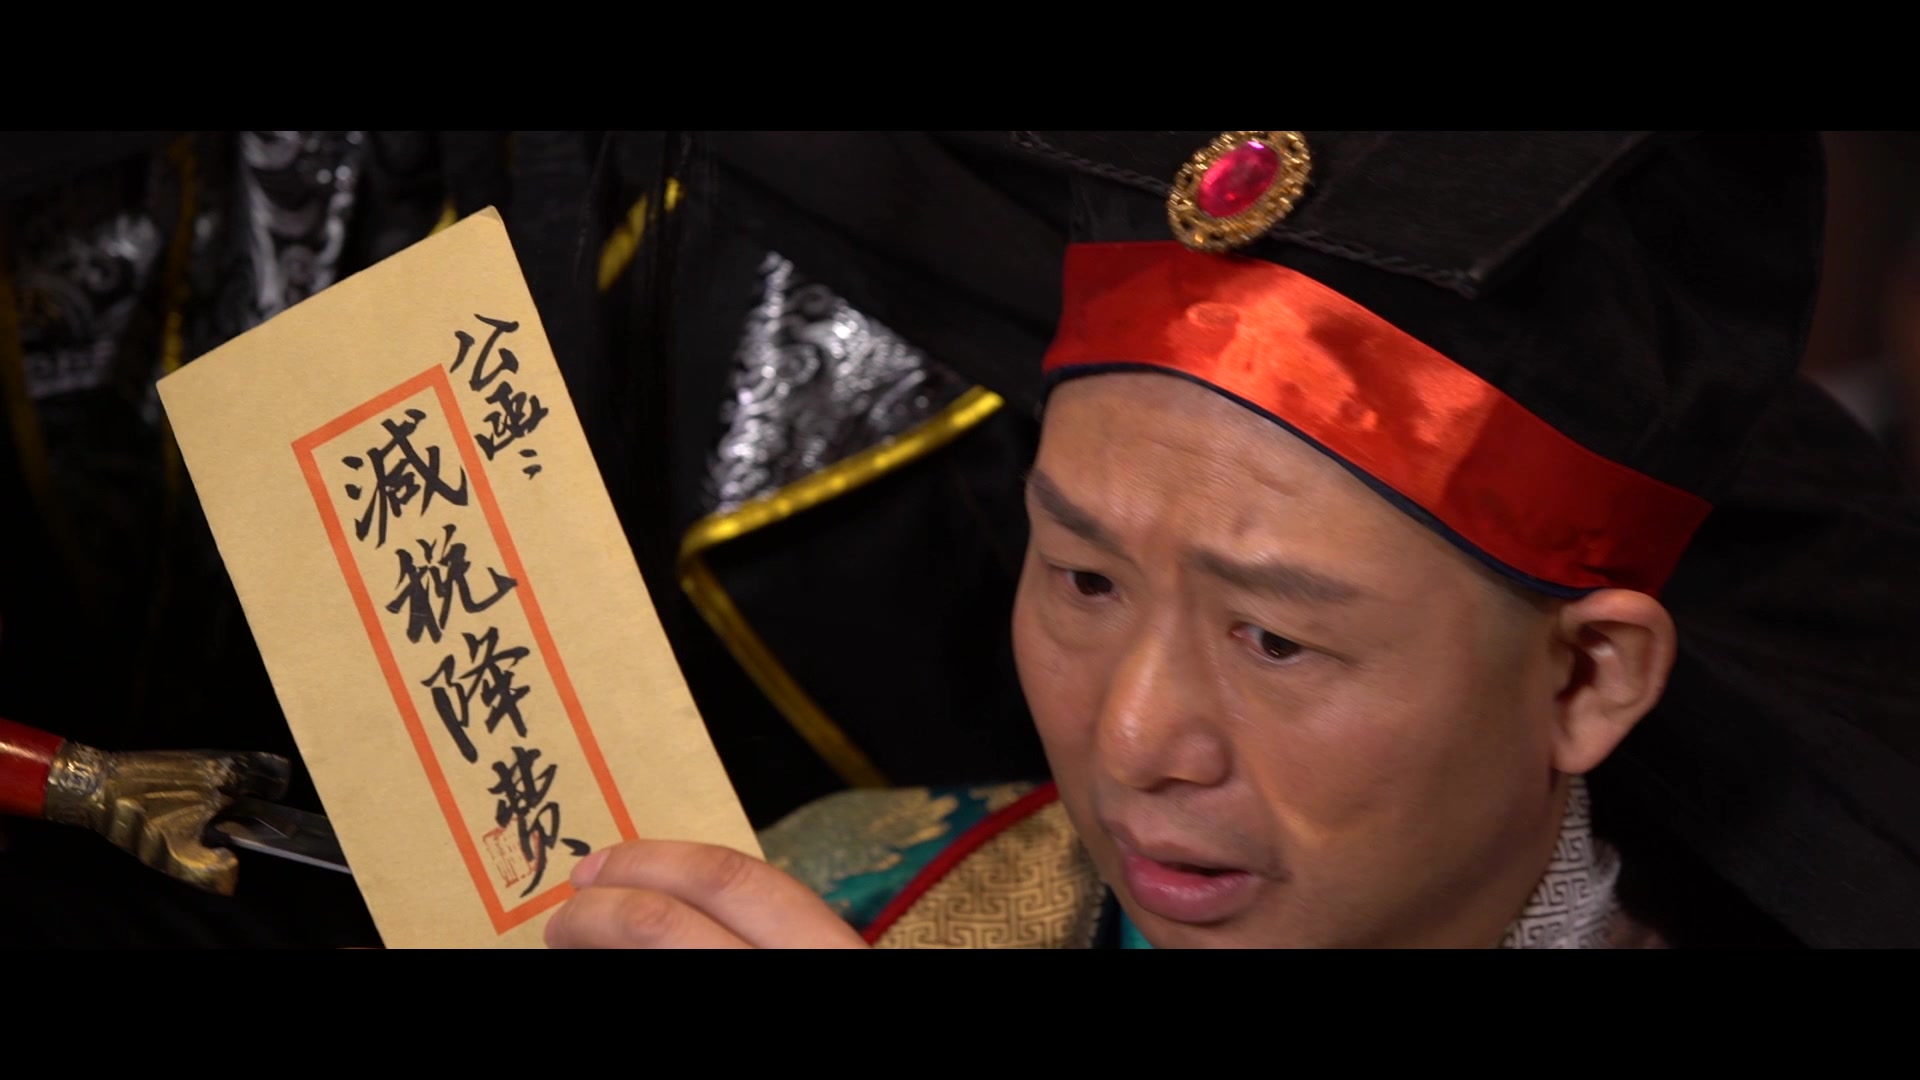 公函:
減税降费